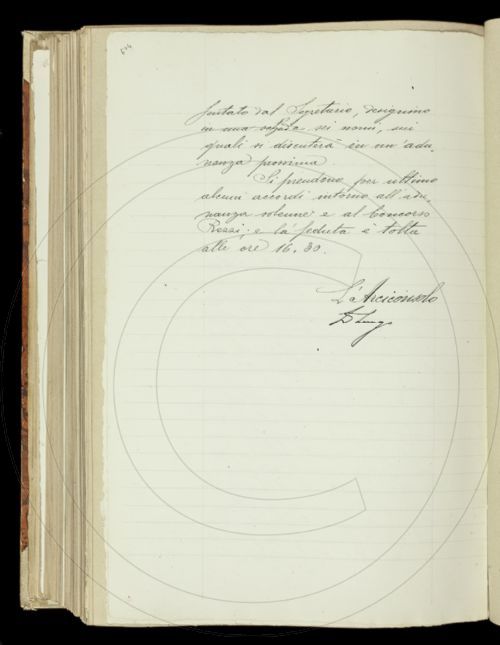 sentato dal Segretario, designino
in una scheda sei nomi, sui
quali si discuterà in un' adu,
nanza prossima
Si prendono per ultimo
alcuni accordi intorno all' adu,
nanza solenne e al Concorso
Rezzi; e la seduta è tolta
alle ore 16,30.
L'Arciconsolo